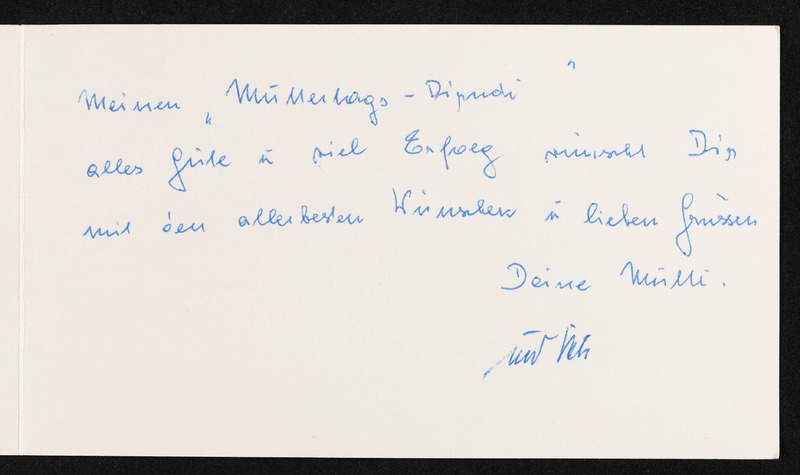 Meinen „Muttertags-Dirndi"
alles Gute u viel Erfolg wünscht Dir
mit den allerbesten Wünschen u lieben Grüssen
Deine Mutti.
und